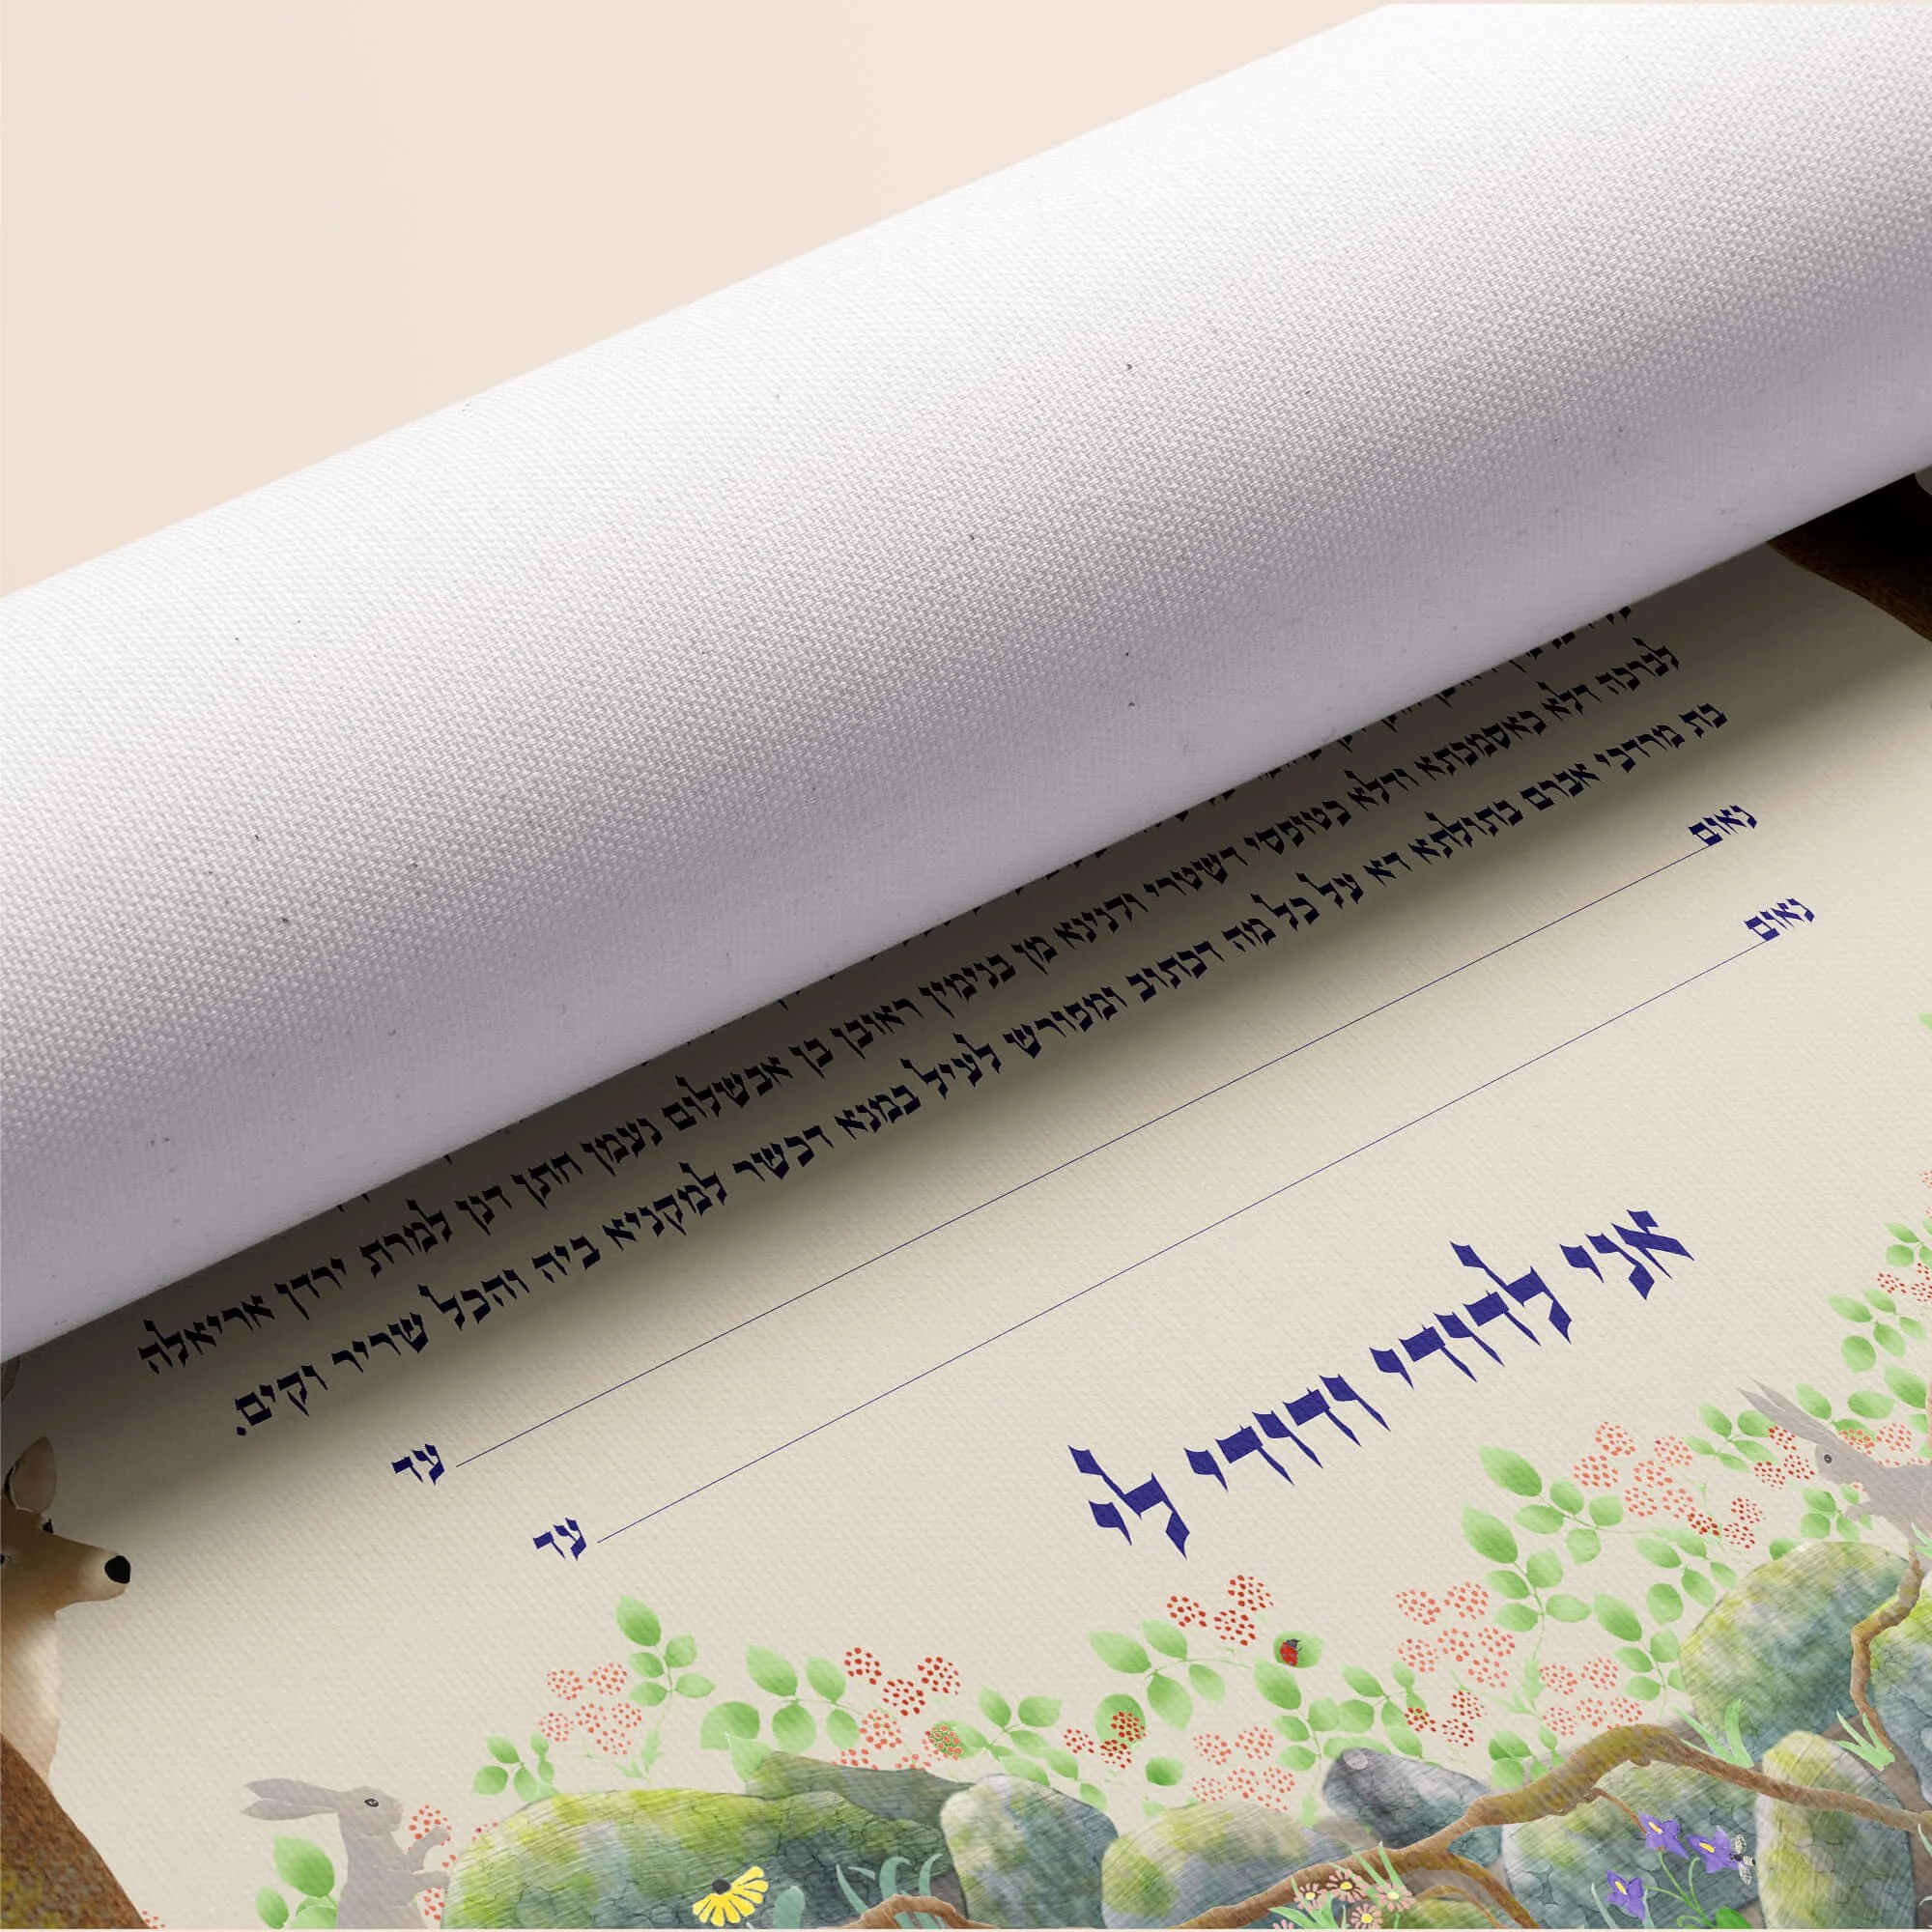 לברכה דלא כאסמכתא ודלא כטופסי דשטרי וקנינא מן בנימין ראובן בן אבשלום נעמן חתן דנן למרת ירדן אריאלה
בת מרדכי אברם בתולתא דא על כל מה דכתוב ומפורש לעיל במנא דכשר למקניא ביה והכל שריר וקים.
נאם עד
נאם עד
אני לדודי ודודי לי